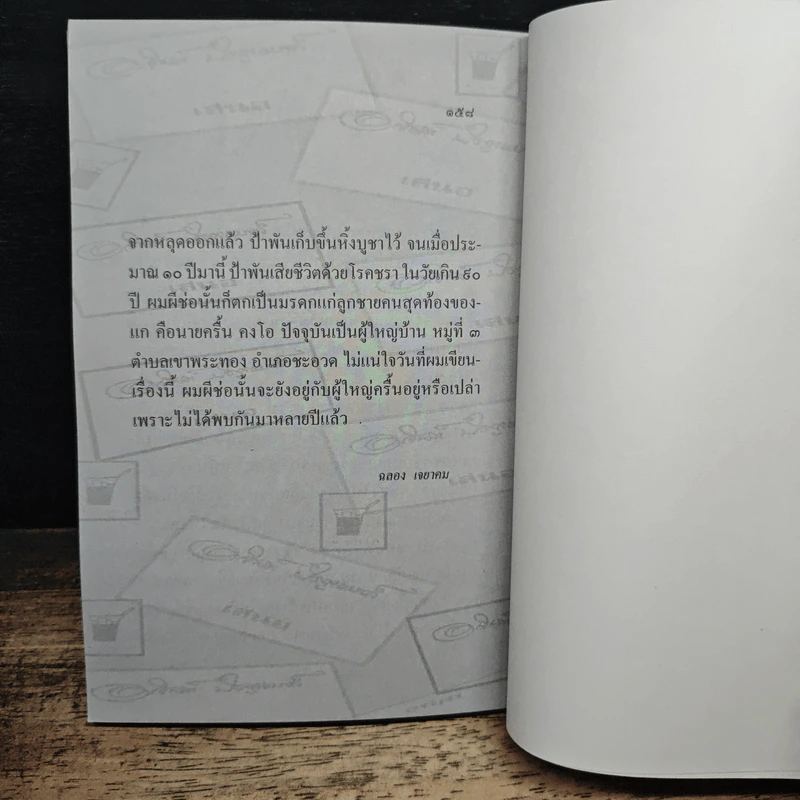 ๑๕๘
จากหลุดออกแล้ว ป้าพันเก็บขึ้นหิ้งบูชาไว้ จนเมื่อประ-
มาณ ๑๐ ปีมานี้ ป้าพันเสียชีวิตด้วยโรคชรา ในวัยเกิน ๙๐
ปี ผมผีช่อนั้นก็ตกเป็นมรดกแก่ลูกชายคนสุดท้องของ-
แก คือนายครื้น คงโอ ปัจจุบันเป็นผู้ใหญ่บ้าน หมู่ที่ ๓
ตำบลเขาพระทอง อำเภอชะอวด ไม่แน่ใจวันที่ผมเขียน-
เรื่องนี้ ผมผีช่อนั้นจะยังอยู่กับผู้ใหญ่ครื้นอยู่หรือเปล่า
เพราะไม่ได้พบกันมาหลายปีแล้ว
ฉลอง เจยาคม